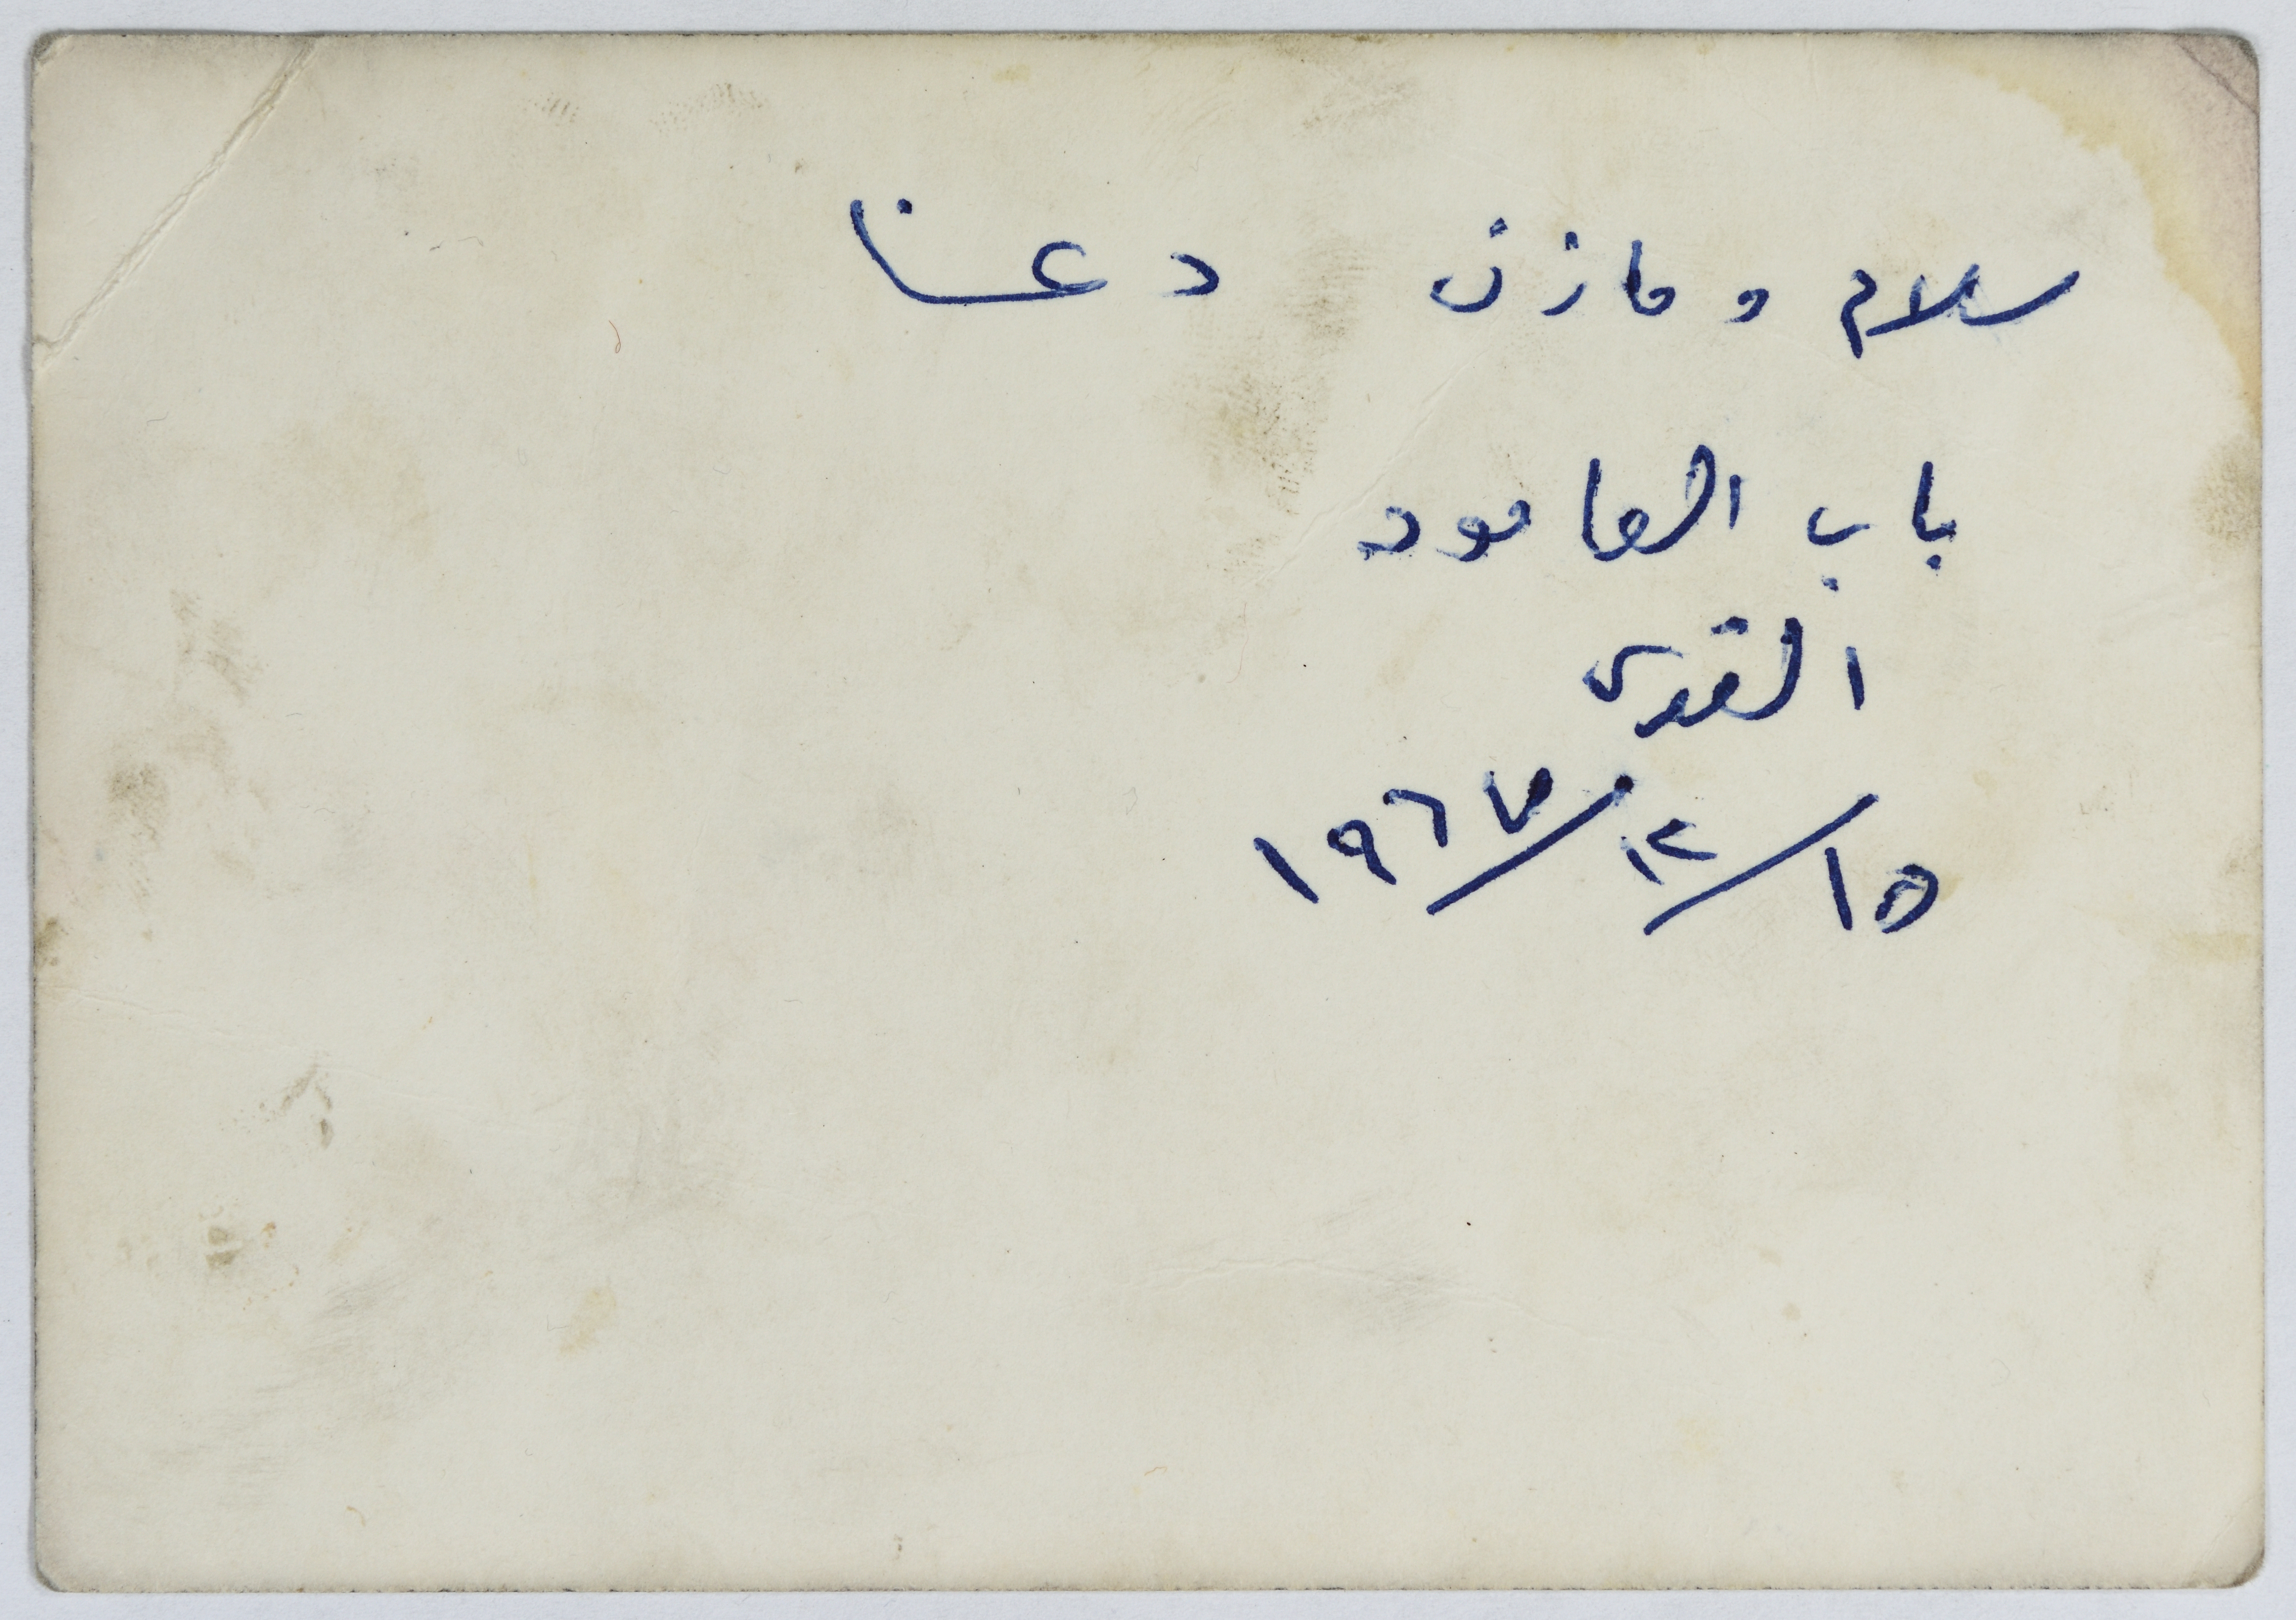 سلام و مازن دعنا
باب العامود
القدس
١٥/١٢/١٩٦٧